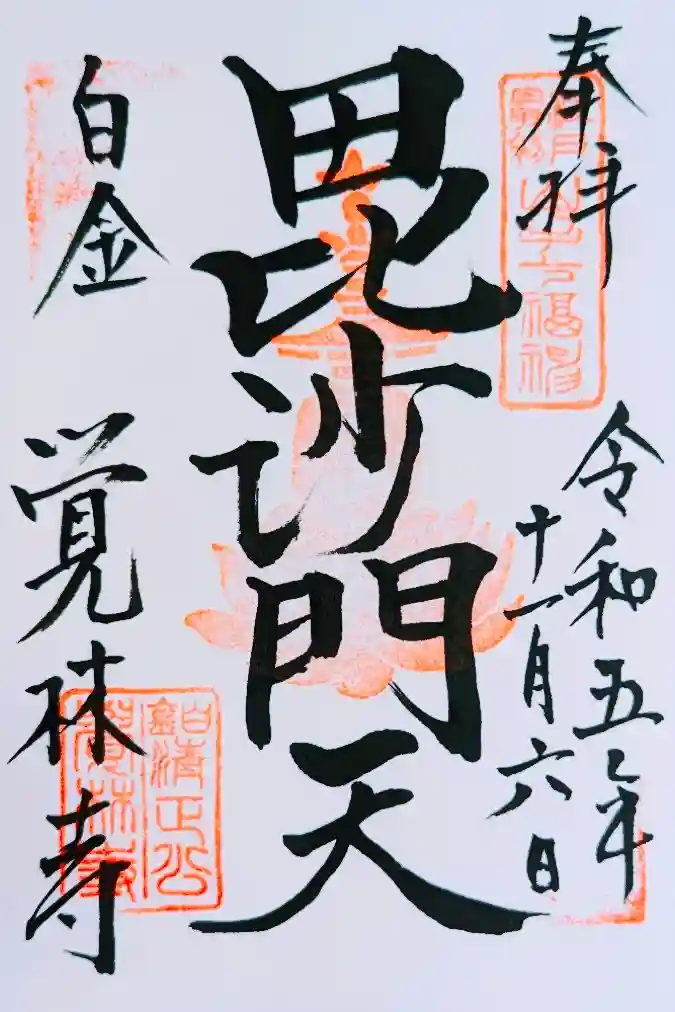 奉拝
令和五年
十一月六日
毘沙門天
白金
覚林寺
白金
清正公
覚林寺